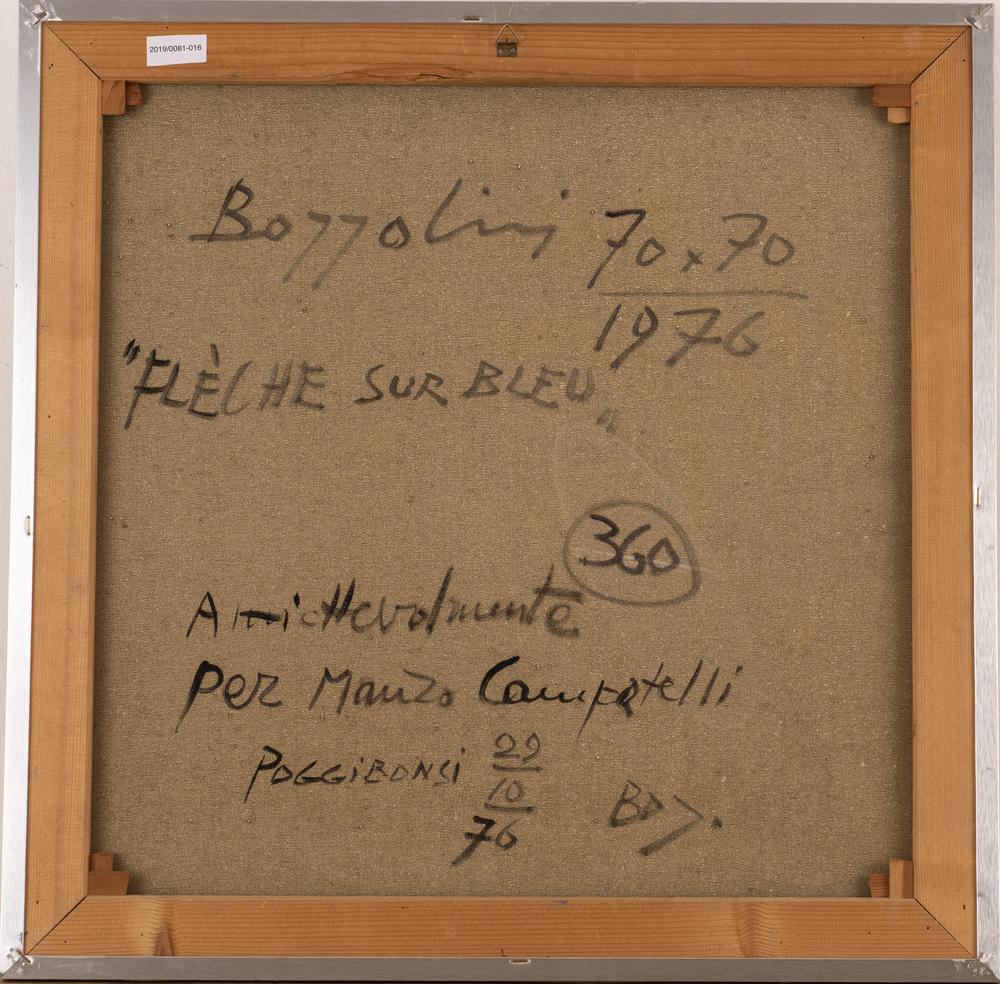 2019/0081-016
Bozzolini 70x70
1976
"FLÈCHE SUR BLEU„
360
Amichevolmente
Per Manzo Campatelli
POGGIBONSI 29
10
76
Boz.